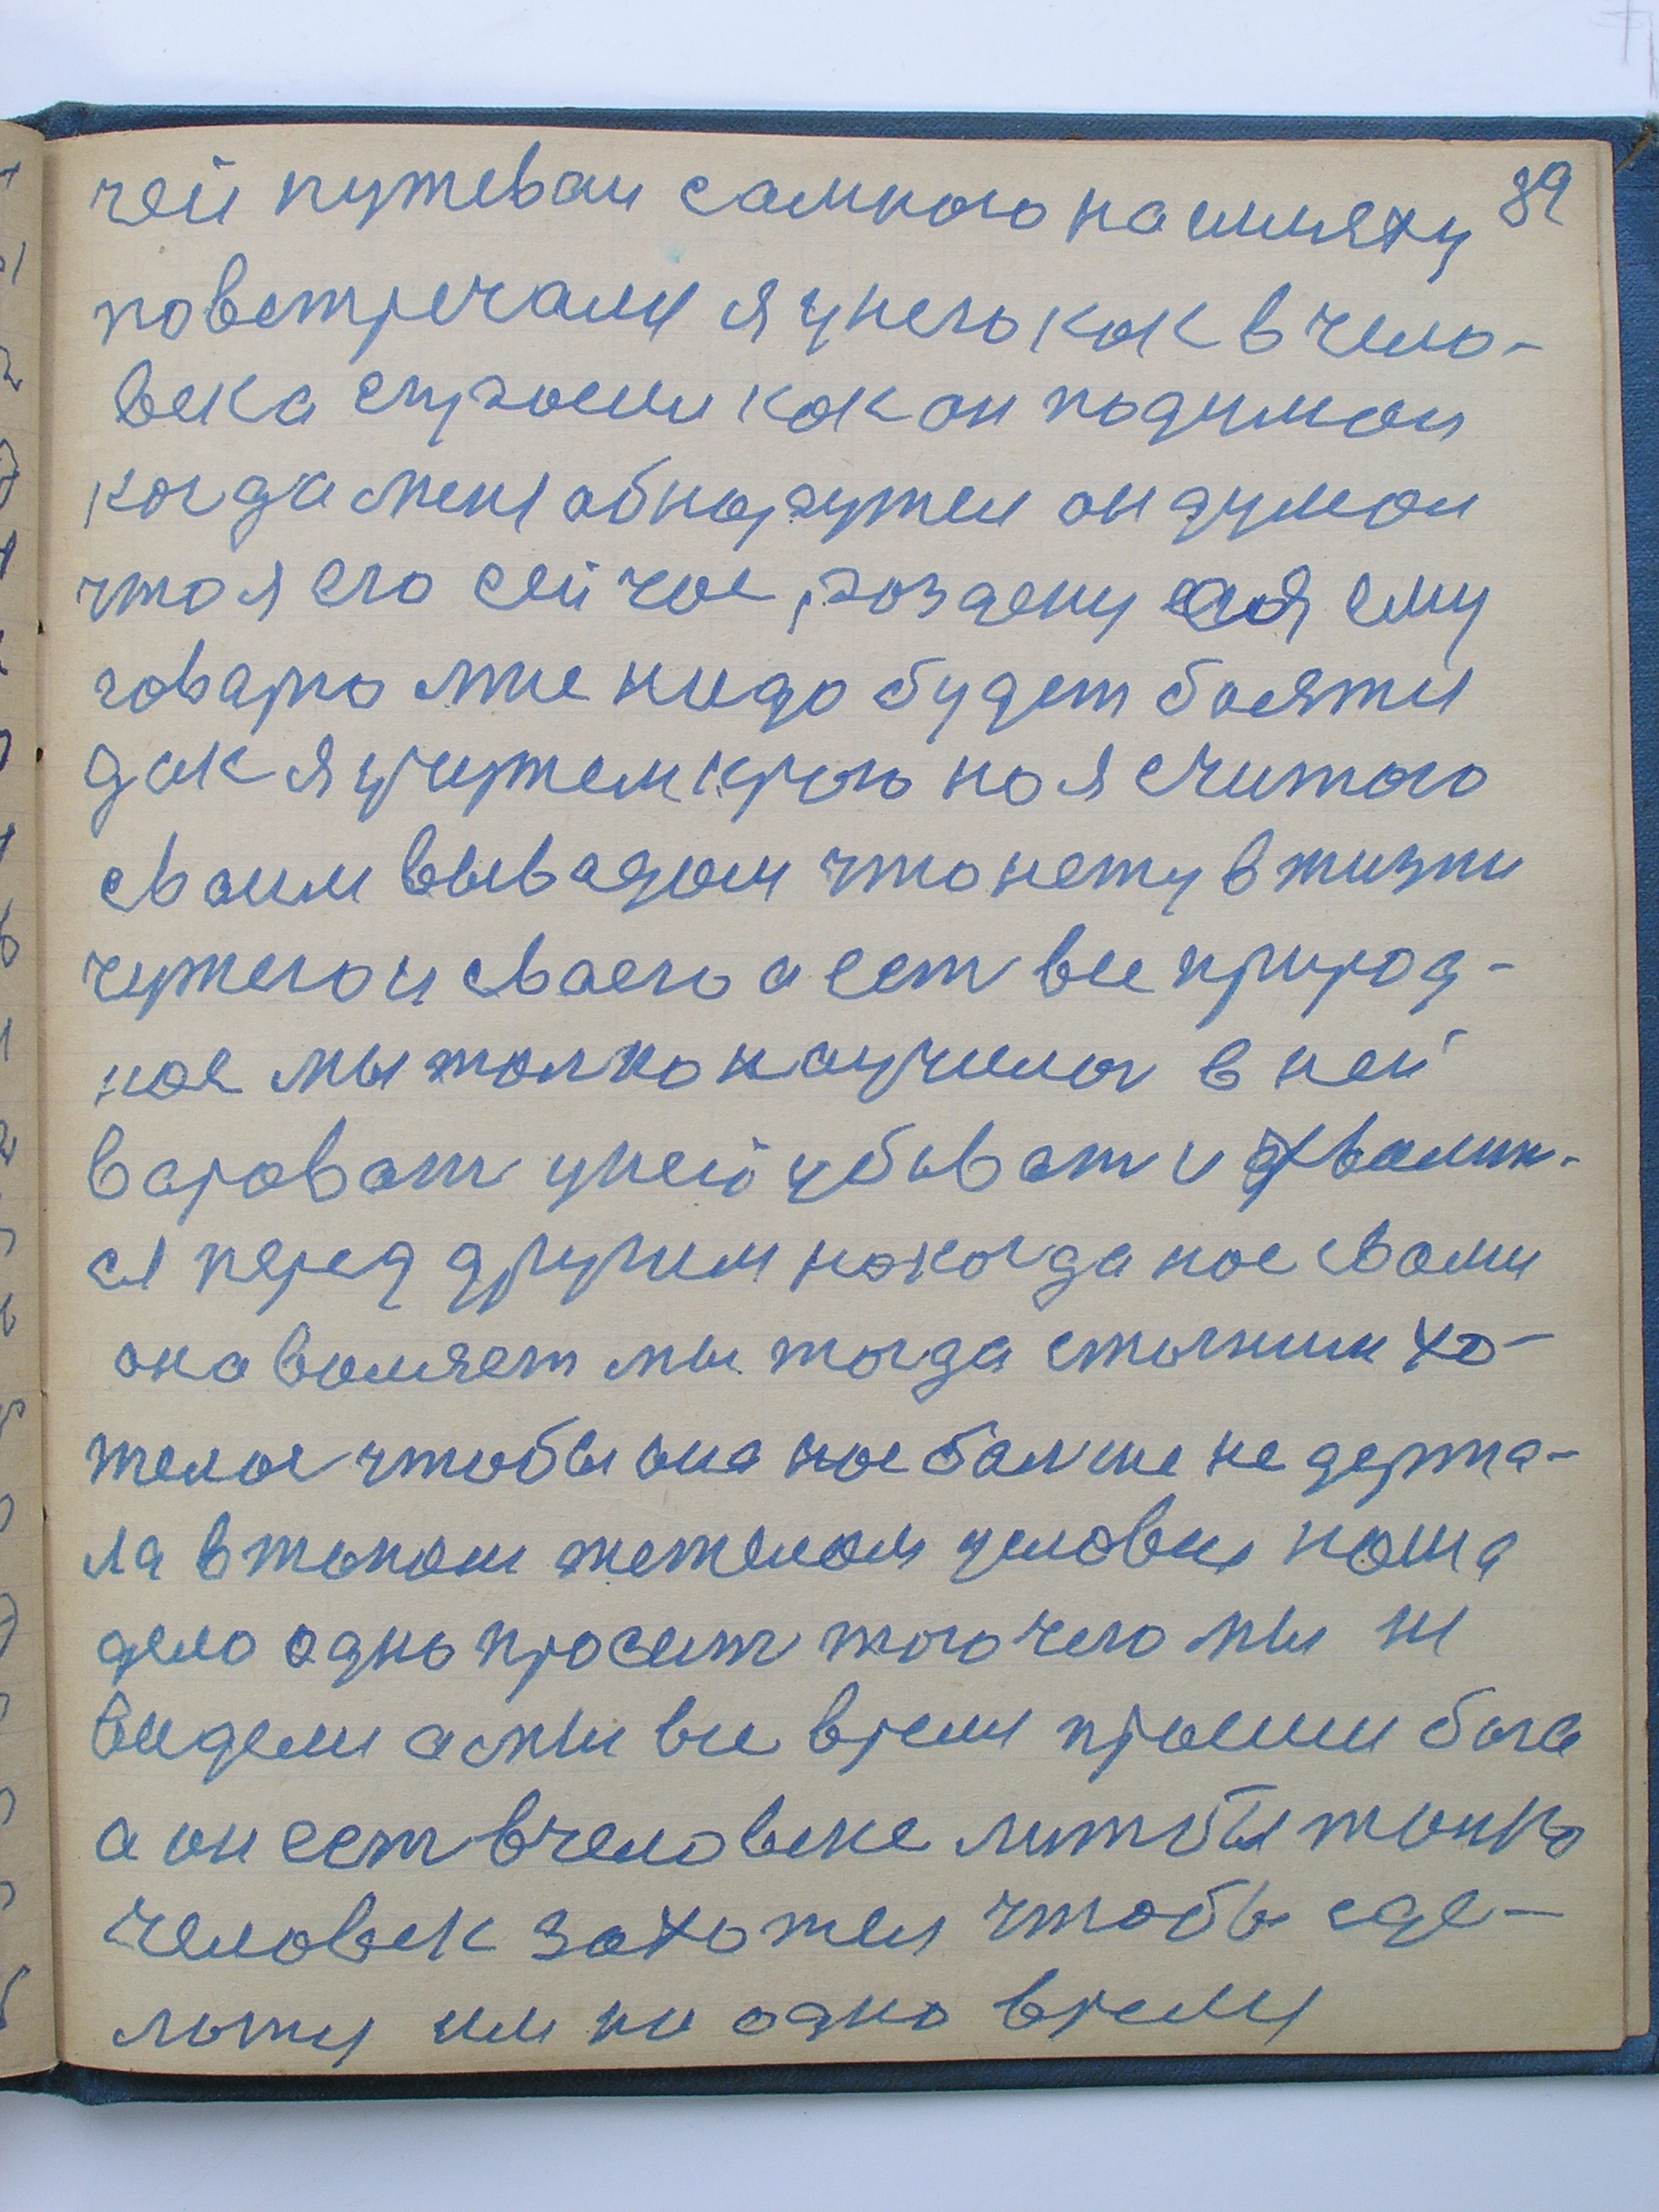 89
чей путеваи самного нашляху
повстречали я унего как в чело-
века спросил как он подумал
когда меня обнаружел он думал
что я его сейчас раздену а я ему
говарю мне нидо будет боятся
дак я учужем краю но я считаю
сваим вывадом что нету в жизни
чужего и сваего а ест все природ-
ное мы толко научилис в ней
вароват уней убиват и хвалит-
ся перед другим но когда нас свами
она валяет мы тогда стогним хо-
телос чтобы она нас балше не держа-
ла в таком тежолом условия наша
дело одно просит того чего мы ни
видели а мы все время просим бога
а он ест в человеке лиш бы толко
человек захотел чтобы сде-
лоти им ни одно время